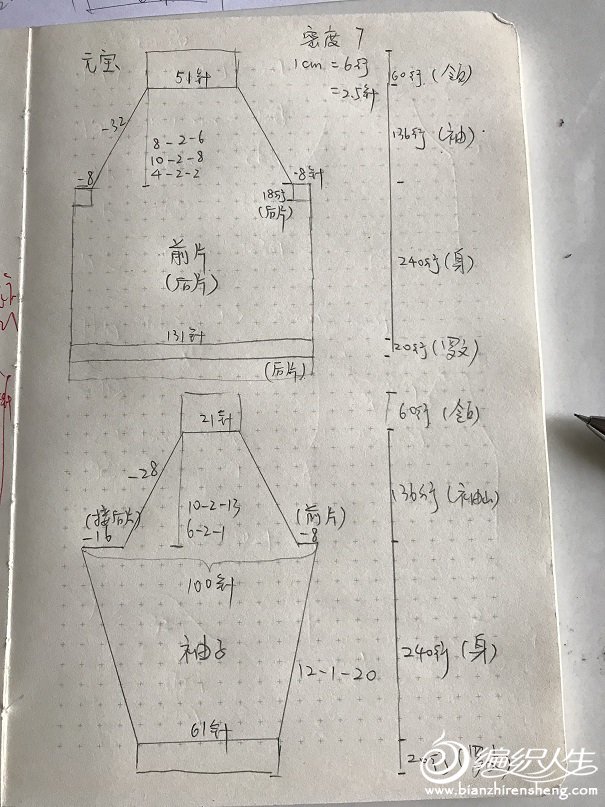 元宝
密度 7
1cm = 6行
= 2.5针
51针
60行(领)
-32
8-2-6
10-2-8
4-2-2
136行(袖)
-8
-8针
18行
(后片)
前片
(后片)
240行(身)
131针
20行(罗文)
(后片)
21针
60行(领)
-28
10-2-13
6-2-1
136行(袖山)
(接后片)
-16
(前片)
-8
100针
袖子
12-1-20
240行(身)
61针
编织人生
www.bianzhirensheng.com